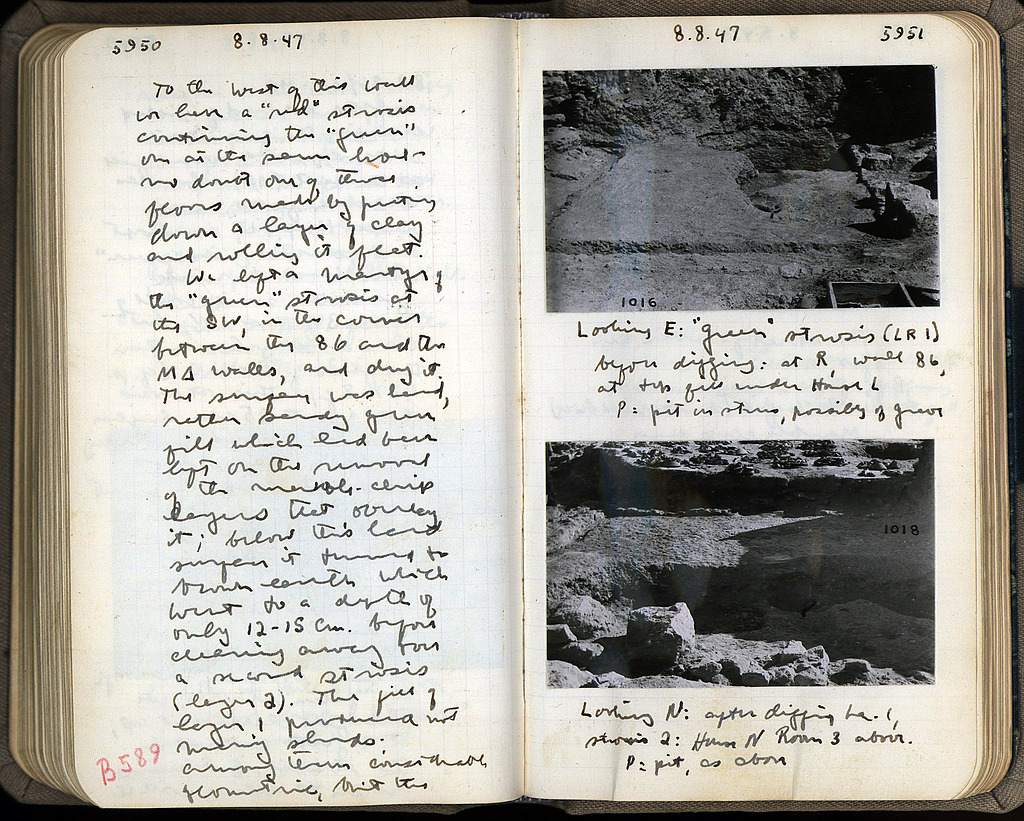 5950 8.8.47
To the West of this wall
we have a "red" strosis
continuing the "green"
one at the same level -
no doubt one of those
floors made by putting
down a layer of clay
and rolling it flat.
We left a martyr of
the "green" strosis at
the SW, in the corner
between the 86 and the
MΔ walls, and dug it.
The surface was hard,
rather sandy green
fill which had been
left on the removal
of the marble-chip
layers that overlay
it; below this hard
surface it turned to
brown earth which
went to a depth of
only 12-15 cm. before
clearing away from
a second strosis
(layer 2). The fill of
layer 1 produced not
many sherds.
among them considerable
Geometric, but the
B589
8.8.47 5951
1016
Looking E: "green" strosis (LR 1)
before digging: at R, wall 86,
at top fill under House L
P: pit in strosis, possibly of grave
1018
Looking N: after digging La. 1,
strosis 2: House N Room 3 above.
P: pit, as above